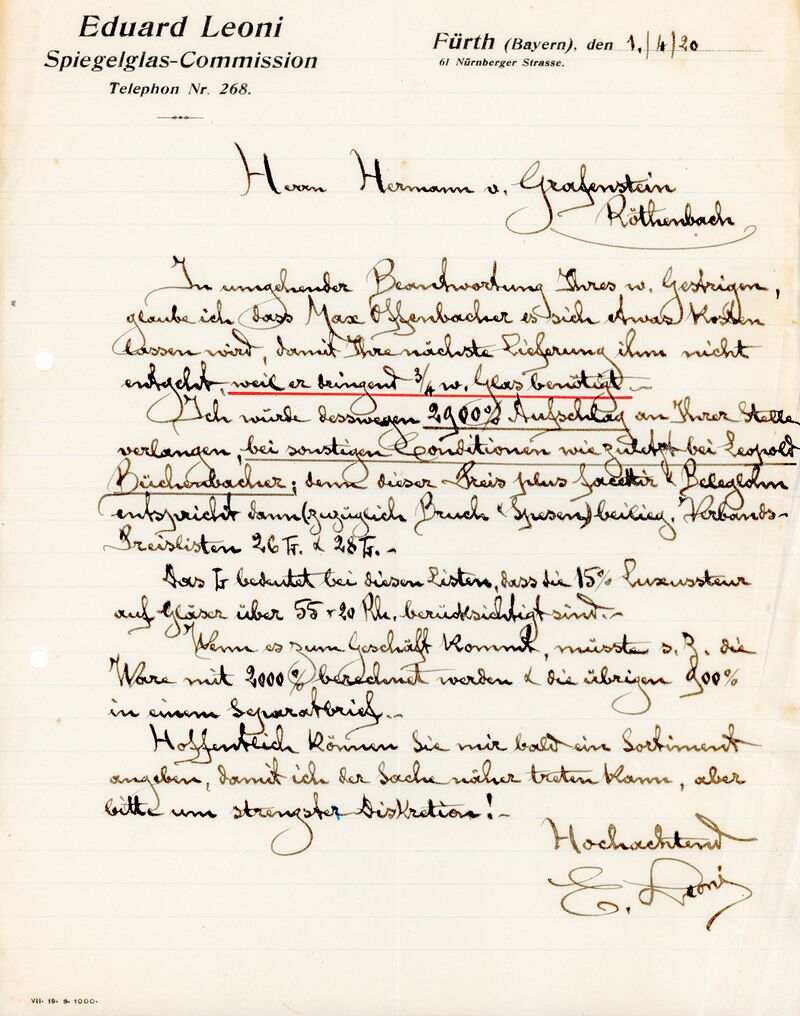 Eduard Leoni
Spiegelglas-Commission
Telephon Nr. 268.
Fürth (Bayern), den 1./4/20
61 Nürnberger Strasse.
Herrn Hermann v. Grafenstein
Röthenbach
In umgehender Beantwortung Ihres w. Gestrigen,
glaube ich, dass Max Offenbacher es sich etwas Kosten
lassen wird, damit Ihre nächste Lieferung ihm nicht
entgeht, weil er dringend 3/4 w. Glas benötigt.-
Ich würde desswegen 2900% Aufschlag an Ihrer Stelle
verlangen, bei sonstigen Conditionen wie zuletzt bei Leopold
Büchenbacher; denn dieser Preis plus facettir & Beleglohn
entspricht dann (zuzüglich Bruch & Spesen) beilieg. Verbands-
Preislisten 26 Fr. & 28 Fr.-
Das Fr bedeutet bei diesen Listen, dass die 15% Luxussteur
auf Gläser über 55 + 20 Rh. berücksichtigt sind.-
Wenn es zum Geschäft Kommt, müsste s. Z. die
Ware mit 2000% berechnet werden & die übrigen 900%
in einem Separatbrief.-
Hoffentlich können Sie mir bald ein Sortiment
angeben, damit ich der Sache näher treten Kann, aber
bitte um strengster Diskretion!-
Hochachtend
E. Leoni
VII. 19. 9. 1000.